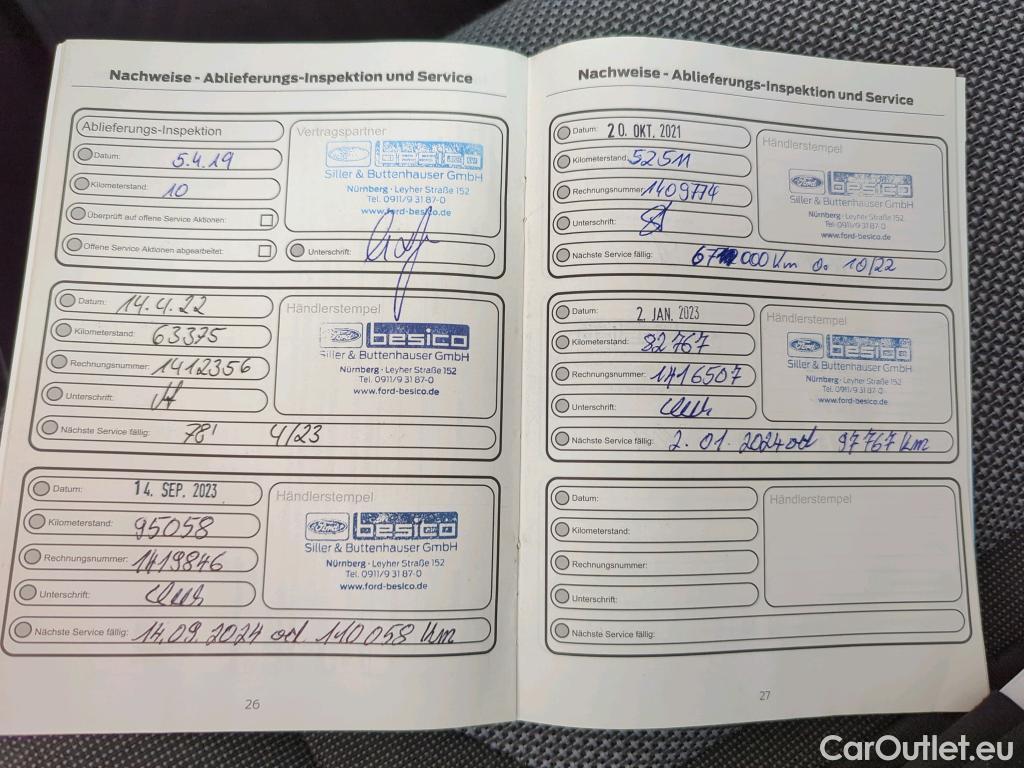 Nachweise - Ablieferungs-Inspektion und Service
Ablieferungs-Inspektion
Datum: 5.4.19
Kilometerstand: 10
Überprüft auf offene Service Aktionen:
Offene Service Aktionen abgearbeitet:
Vertragspartner
Ford besico
Siller & Buttenhauser GmbH
Nürnberg · Leyher Straße 152
Tel. 0911/9 31 87-0
www.ford-besico.de
Unterschrift:
Datum: 14.4.22
Kilometerstand: 63375
Rechnungsnummer: 1412356
Unterschrift:
Nächste Service fällig: 78' 4/23
Händlerstempel
Ford besico
Siller & Buttenhauser GmbH
Nürnberg · Leyher Straße 152
Tel. 0911/9 31 87-0
www.ford-besico.de
Datum: 14. SEP. 2023
Kilometerstand: 95058
Rechnungsnummer: 1419846
Unterschrift:
Nächste Service fällig: 14.09.2024 od. 110058 km
Händlerstempel
Ford besico
Siller & Buttenhauser GmbH
Nürnberg · Leyher Straße 152
Tel. 0911/9 31 87-0
www.ford-besico.de
26
Nachweise - Ablieferungs-Inspektion und Service
Datum: 20. OKT. 2021
Kilometerstand: 52511
Rechnungsnummer: 1409774
Unterschrift:
Nächste Service fällig: 67 000 Km o. 10/22
Händlerstempel
Ford besico
Siller & Buttenhauser GmbH
Nürnberg · Leyher Straße 152
Tel. 0911/9 31 87-0
www.ford-besico.de
Datum: 2. JAN. 2023
Kilometerstand: 82767
Rechnungsnummer: 1416507
Unterschrift:
Nächste Service fällig: 2.01.2024 od 97767 km
Händlerstempel
Ford besico
Siller & Buttenhauser GmbH
Nürnberg · Leyher Straße 152
Tel. 0911/9 31 87-0
www.ford-besico.de
Datum:
Kilometerstand:
Rechnungsnummer:
Unterschrift:
Nächste Service fällig:
Händlerstempel
27
CarOutlet.eu